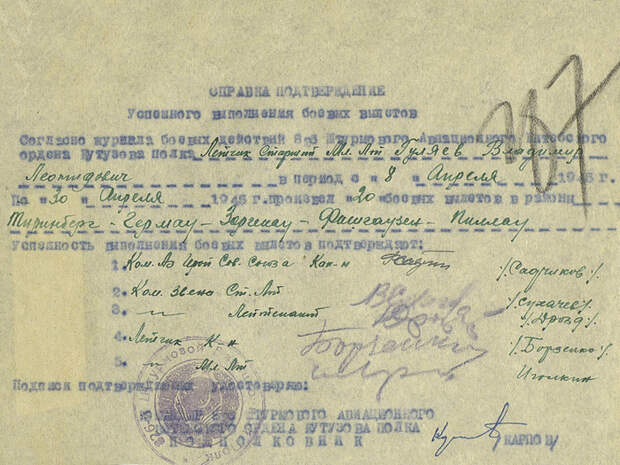 СПРАВКА ПОДТВЕРЖДЕНИЕ
Успешного выполнения боевых вылетов
Согласно журнала боевых действий 893 Штурмового Авиационного Витебского
ордена Кутузова полка Летчик Старший Мл. Лт Гуляев Владимир
Леонтьевич в период с 8 Апреля 1945 г.
По 30 Апреля 1945 г. произвел 20 боевых вылетов в районы
Тиринберг - Гермау - - Фишгаузен - Пиллау
Успешность выполнения боевых вылетов подтверждают:
1. Ком. Аэ Герой Сов. Союза Кап-н /Садчиков/.
2. Ком. Звена Ст. Лт /Сухачев/.
3. -"- Лейтенант /Дрозд/.
4. Летчик К-н /Борзенко/.
5. -"- Мл. Лт Иголкин
Подписи подтверждения удостоверяю:
893 ШТУРМОВОГО АВИАЦИОННОГО
ВИТЕБСКОГО ОРДЕНА КУТУЗОВА ПОЛКА
ПОДПОЛКОВНИК /КАРПОВ/